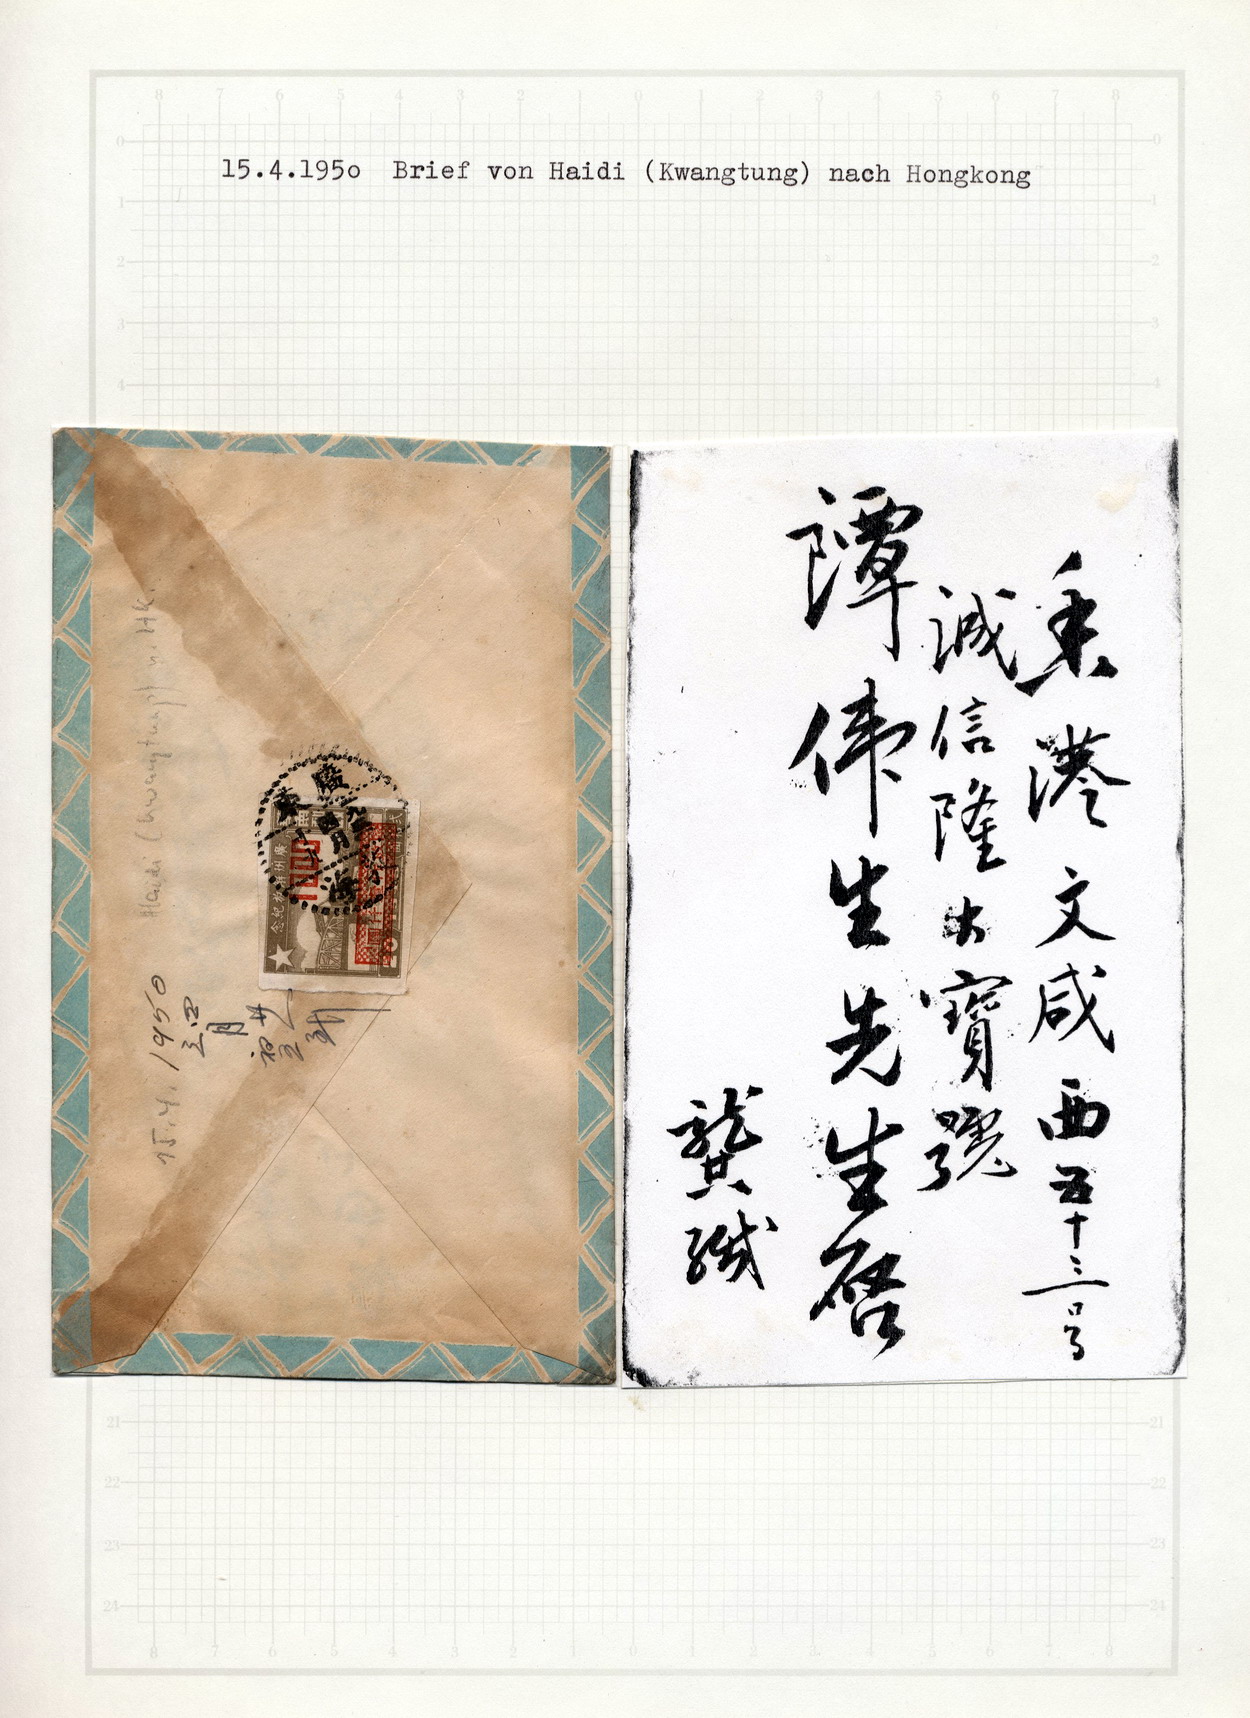 15.4.195o  Brief von Haidi (Kwangtung) nach Hongkong
香港文咸西五十三号
誠信隆大寶號
譚偉生先生啓
龔緘
Haidi (Kwangtung) n. HK.
15.4.1950